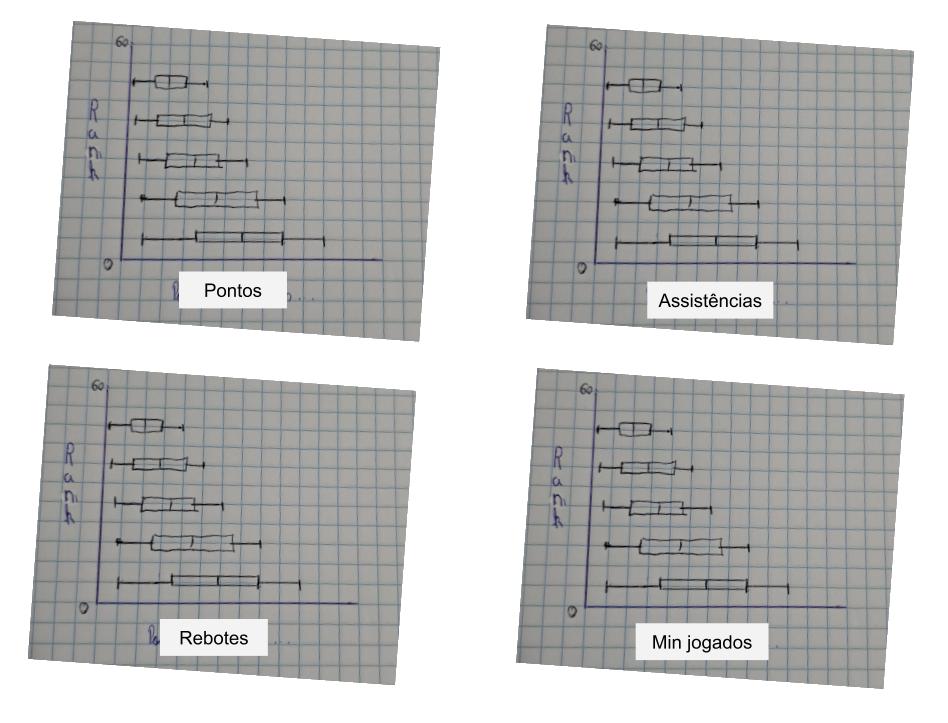 60
Rank
0
Pontos
60
Rank
0
Assistências
60
Rank
0
Rebotes
60
Rank
0
Min jogados